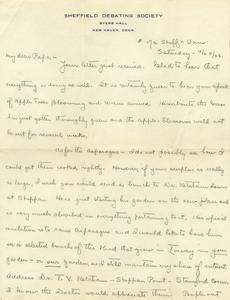 SHEFFIELD DEBATING SOCIETY
BYERS HALL
NEW HAVEN, CONN.
Saturday -
My dear Papa -
Your letter just received. Glad to hear that
everything is doing so well. It is certainly queer to hear you speak
of Apple Trees blooming and warm
has just gotten thoroughly green and the Apple-blossoms will not
be out for several weeks.
As for the asparagus - I do not possibly see how I
could get them cooked rightly. However if your surplus is really
so large, I wish you would send a bunch to Dr.
at Shippan. He is just starting his garden on the new place and
is very much absorbed in everything pertaining to it. His special
ambition is to raise Asparagus and I would like to have him
see a selected bunch of the kind that grow in in your
garden - or our garden, as I still maintain my share of interest
Address Dr. T. V. - Shippan Point - Stamford Conn
I know the Doctor would appreciate them. People out